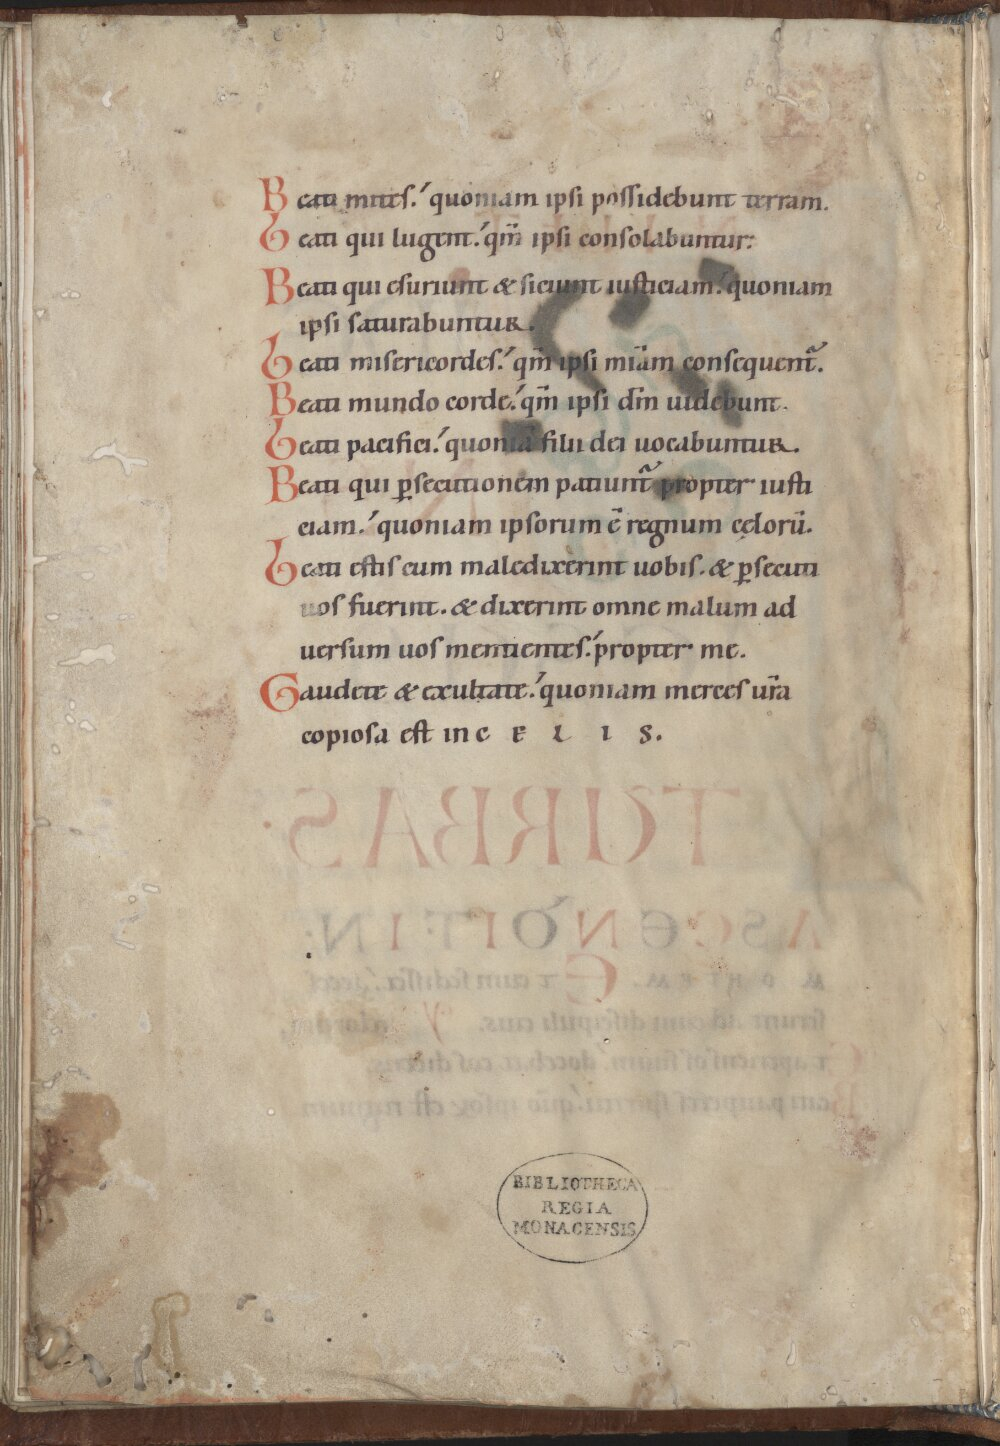 Beati mites. quoniam ipsi possidebunt terram.
Beati qui lugent. qm̄ ipsi consolabuntur.
Beati qui esuriunt & siciunt iusticiam. quoniam
ipsi saturabuntur.
Beati misericordes. qm̄ ipsi mīam consequent̃.
Beati mundo corde. qm̄ ipsi dm̄ uidebunt.
Beati pacifici. quoniā filii dei uocabuntur.
Beati qui ꝑsecutionem patiunt̃ propter iusti
ciam. quoniam ipsorum ē regnum cęlorū.
Beati estis cum maledixerint uobis. & ꝑsecuti
uos fuerint. & dixerint omne malum ad
uersum uos mentientes. propter me.
Gaudete & exultate. quoniam merces ur̄a
copiosa est in c E L I S.
TURBAS
ASCENDIT IN
MORTEM.
BIBLIOTHECA
REGIA
MONACENSIS